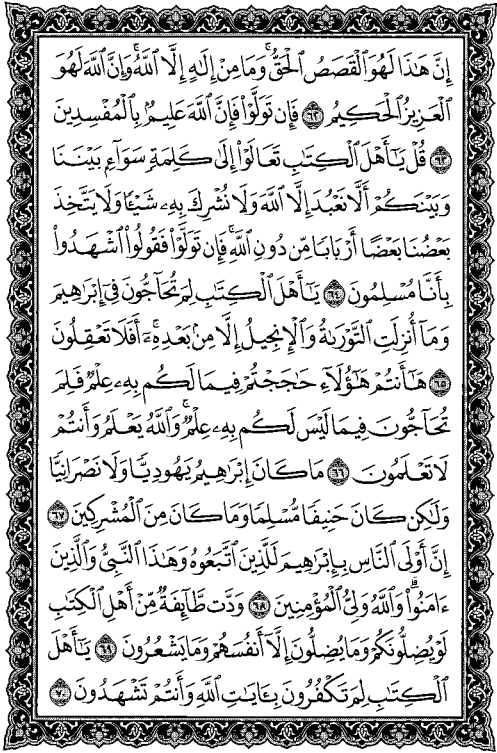 إِنَّ هَٰذَا لَهُوَ الْقَصَصُ الْحَقُّ ۚ وَمَا مِنْ إِلَٰهٍ إِلَّا اللَّهُ ۚ وَإِنَّ اللَّهَ لَهُوَ
الْعَزِيزُ الْحَكِيمُ ﴿٦٢﴾ فَإِن تَوَلَّوْا فَإِنَّ اللَّهَ عَلِيمٌ بِالْمُفْسِدِينَ
﴿٦٣﴾ قُلْ يَا أَهْلَ الْكِتَابِ تَعَالَوْا إِلَىٰ كَلِمَةٍ سَوَاءٍ بَيْنَنَا
وَبَيْنَكُمْ أَلَّا نَعْبُدَ إِلَّا اللَّهَ وَلَا نُشْرِكَ بِهِ شَيْئًا وَلَا يَتَّخِذَ
بَعْضُنَا بَعْضًا أَرْبَابًا مِّن دُونِ اللَّهِ ۚ فَإِن تَوَلَّوْا فَقُولُوا اشْهَدُوا
بِأَنَّا مُسْلِمُونَ ﴿٦٤﴾ يَا أَهْلَ الْكِتَابِ لِمَ تُحَاجُّونَ فِي إِبْرَاهِيمَ
وَمَا أُنزِلَتِ التَّوْرَاةُ وَالْإِنجِيلُ إِلَّا مِن بَعْدِهِ ۚ أَفَلَا تَعْقِلُونَ
﴿٦٥﴾ هَا أَنتُمْ هَٰؤُلَاءِ حَاجَجْتُمْ فِيمَا لَكُم بِهِ عِلْمٌ فَلِمَ
تُحَاجُّونَ فِيمَا لَيْسَ لَكُم بِهِ عِلْمٌ ۚ وَاللَّهُ يَعْلَمُ وَأَنتُمْ
لَا تَعْلَمُونَ ﴿٦٦﴾ مَا كَانَ إِبْرَاهِيمُ يَهُودِيًّا وَلَا نَصْرَانِيًّا
وَلَٰكِن كَانَ حَنِيفًا مُّسْلِمًا وَمَا كَانَ مِنَ الْمُشْرِكِينَ ﴿٦٧﴾
إِنَّ أَوْلَى النَّاسِ بِإِبْرَاهِيمَ لَلَّذِينَ اتَّبَعُوهُ وَهَٰذَا النَّبِيُّ وَالَّذِينَ
ءَامَنُوا ۗ وَاللَّهُ وَلِيُّ الْمُؤْمِنِينَ ﴿٦٨﴾ وَدَّت طَّائِفَةٌ مِّنْ أَهْلِ الْكِتَابِ
لَوْ يُضِلُّونَكُمْ وَمَا يُضِلُّونَ إِلَّا أَنفُسَهُمْ وَمَا يَشْعُرُونَ ﴿٦٩﴾ يَا أَهْلَ
الْكِتَابِ لِمَ تَكْفُرُونَ بِـَٔايَاتِ اللَّهِ وَأَنتُمْ تَشْهَدُونَ ﴿٧٠﴾